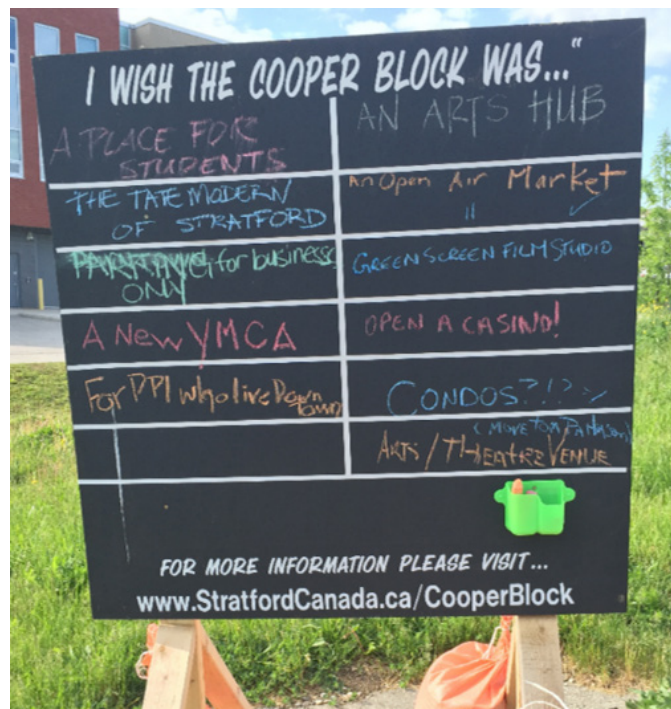 I WISH THE COOPER BLOCK WAS..."
A PLACE FOR
STUDENTS
THE TATE MODERN
OF STRATFORD
for business
ONLY
A New YMCA
For PPl who live Down
town
AN ARTS HUB
An Open Air Market
GREEN SCREEN FILM STUDIO
OPEN A CASINO!
CONDOS?!?
(MOVE TOM PATTERSON)
ARTS/THEATRE VENUE
FOR MORE INFORMATION PLEASE VISIT...
www.StratfordCanada.ca/CooperBlock